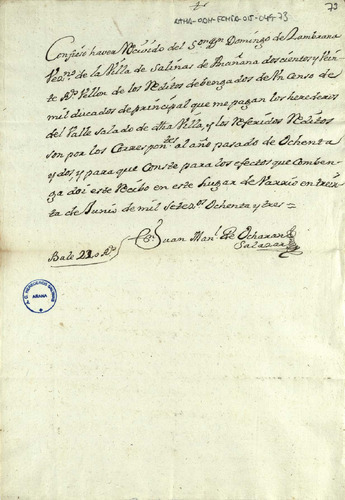 ATHA-DAH-FCHSA-015-044-73
73
Confieso haver Recivido del Sor Dn Domingo de Zambrana
Vezno de la Villa de Salinas de Anana doscientos y Vein
te Rs Vellon de los Reditos debengados de Un Censo de
mil ducados de principal que me pagan los herederos
del Valle Salado de dha Villa, y los Referidos Reditos
son por los Correspondtes al año pasado de Ochenta
y dos, y para que Conste para los efectos que Comben
ga doi este Recibo en este lugar de Varrio en trein
ta de Junio de mil Setezs Ochenta y tres =
Juan Manl de Ocharan
Salazar
Bale 220 Rs
ANANA